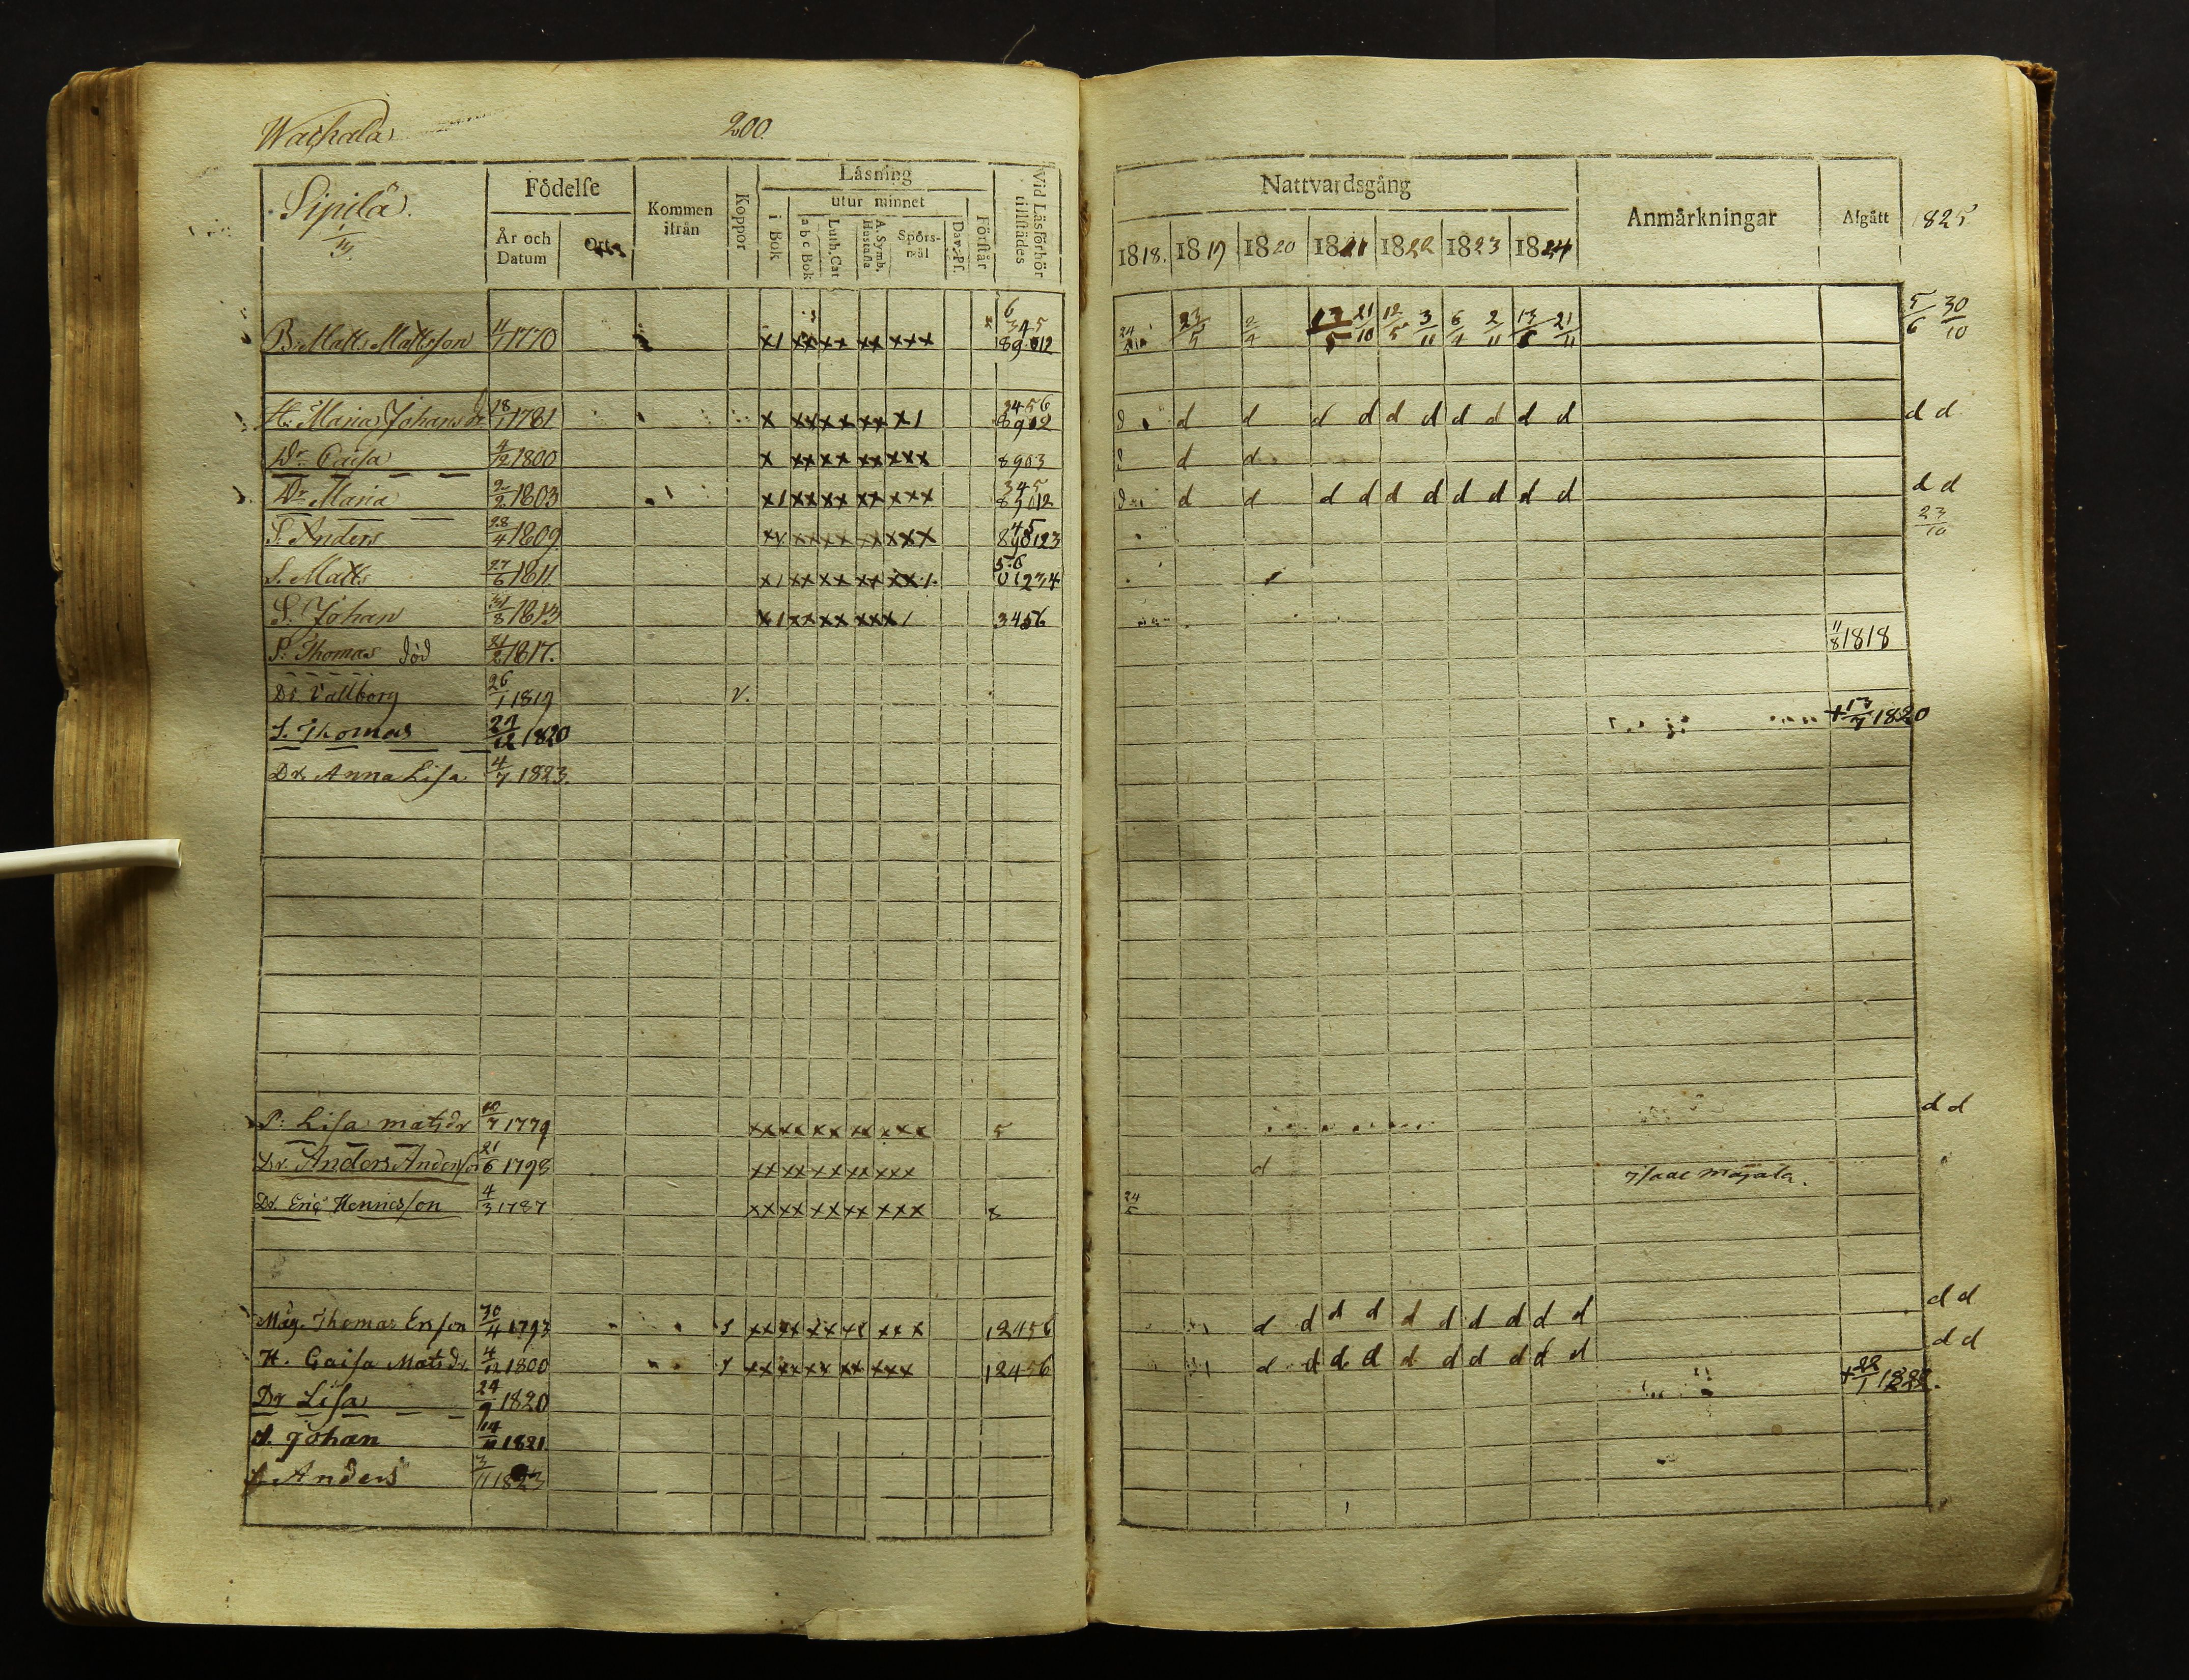 Wachala 200.
Sipilä.
Födelse
År och Datum
Ort
Kommen ifrån
Koppor
Läsning
i Bok
utur minnet
a b c Bok
Luth. Cat
A. Symb. Hustafla
Spörsmål
Dav. Ps.
Förstår
Vid Läsförhör tillstädes
Nattvardsgång
1818. 1819 1820 1821 1822 1823 1824
Anmärkningar
Afgått
1825
B. Matts Mattsson 11/1 1770 x1 xx xx xx xxx 6 345 89012 23/5 21/10 12/5 3/11 6/4 2/11 13/6 21/11 5/6 30/10
H. Maria Johansdr 18/1 1781 x xx xx xx x1 3456 8902 d d d d d d d d d d d d
Dr Caisa 4/12 1800 x xx xx xx xxx 8903 d d
Dr Maria 2/2 1803 x1 xx xx xx xxx 345 89012 d d d d d d d d d d d d
S. Anders 28/4 1809 xv xx xx xx xxx 45 890123 23/10
S. Matts 27/6 1811 x1 xx xx xx xx1. 56 01234
S. Johan 31/8 1813 x1 xx xx xx xx1 3456
S. Thomas död 21/2 1817. 11/8 1818
Dr. Vallborg 26/1 1819 v. +13/7 1820
S. Thomas 21/12 1820
Dr. Anna Lisa 4/7 1823.
P: Lisa matsdr 10/7 1779 xx xx xx xx xxx 5 d d
Dr. Anders Anderss 21/6 1798 xx xx xx xx xxx d Isaac Mäjala.
Dr. Eric Henricsson 4/3 1787 xx xx xx xx xxx 8 24/5
Måg. Thomas Ersson 30/4 1793 s xx xx xx xx xxx 12456 d d d d d d d d d d d d
H. Caisa Matsdr. 4/12 1800 s xx xx xx xx xxx 12456 d d d d d d d d d d d d
Dr Lisa 24/9 1820 +22/1 1822.
S. Johan 14/11 1821
S. Anders 3/11 1823